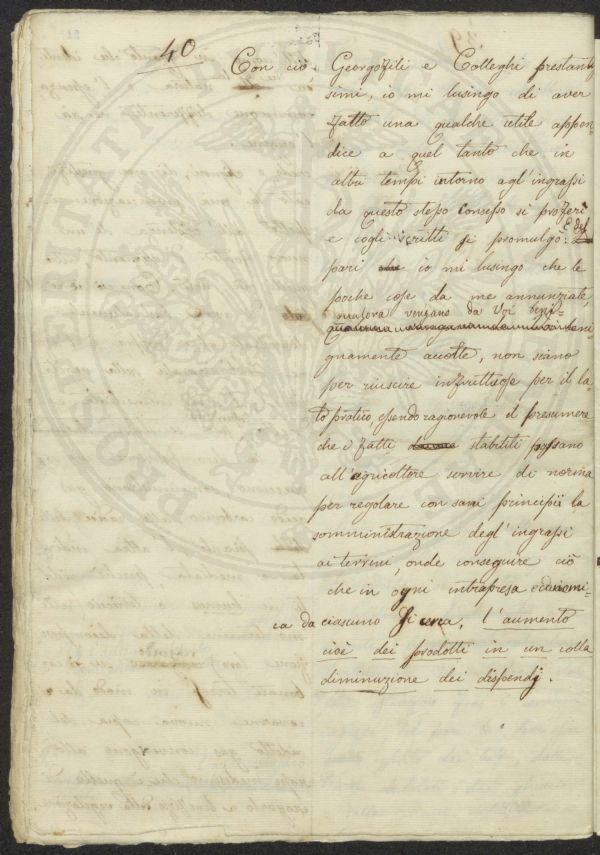 40
Con ciò, Georgofili e Colleghi prestantis
simi, io mi lusingo di aver
fatto una qualche utile appen
dice a quel tanto che in
altri tempi intorno agl'ingrassi
da questo stesso Consesso si proferì
e cogli scritti si promulgò: E del
pari io mi lusingo che le
poche cose da me annunziate,
qualora vengano da Voi beni-
gnamente accolte, non siano
per riuscire infruttuose per il la-
to pratico, essendo ragionevole il presumere
che i fatti stabiliti possano
all'agricoltore servire di norma
per regolare con sani principii la
somministrazione degl'ingrassi
ai terreni, onde conseguire ciò
che in ogni intrapresa economi
ca da ciascuno si cerca, l'aumento
cioè dei prodotti in un colla
diminuzione dei dispendj.